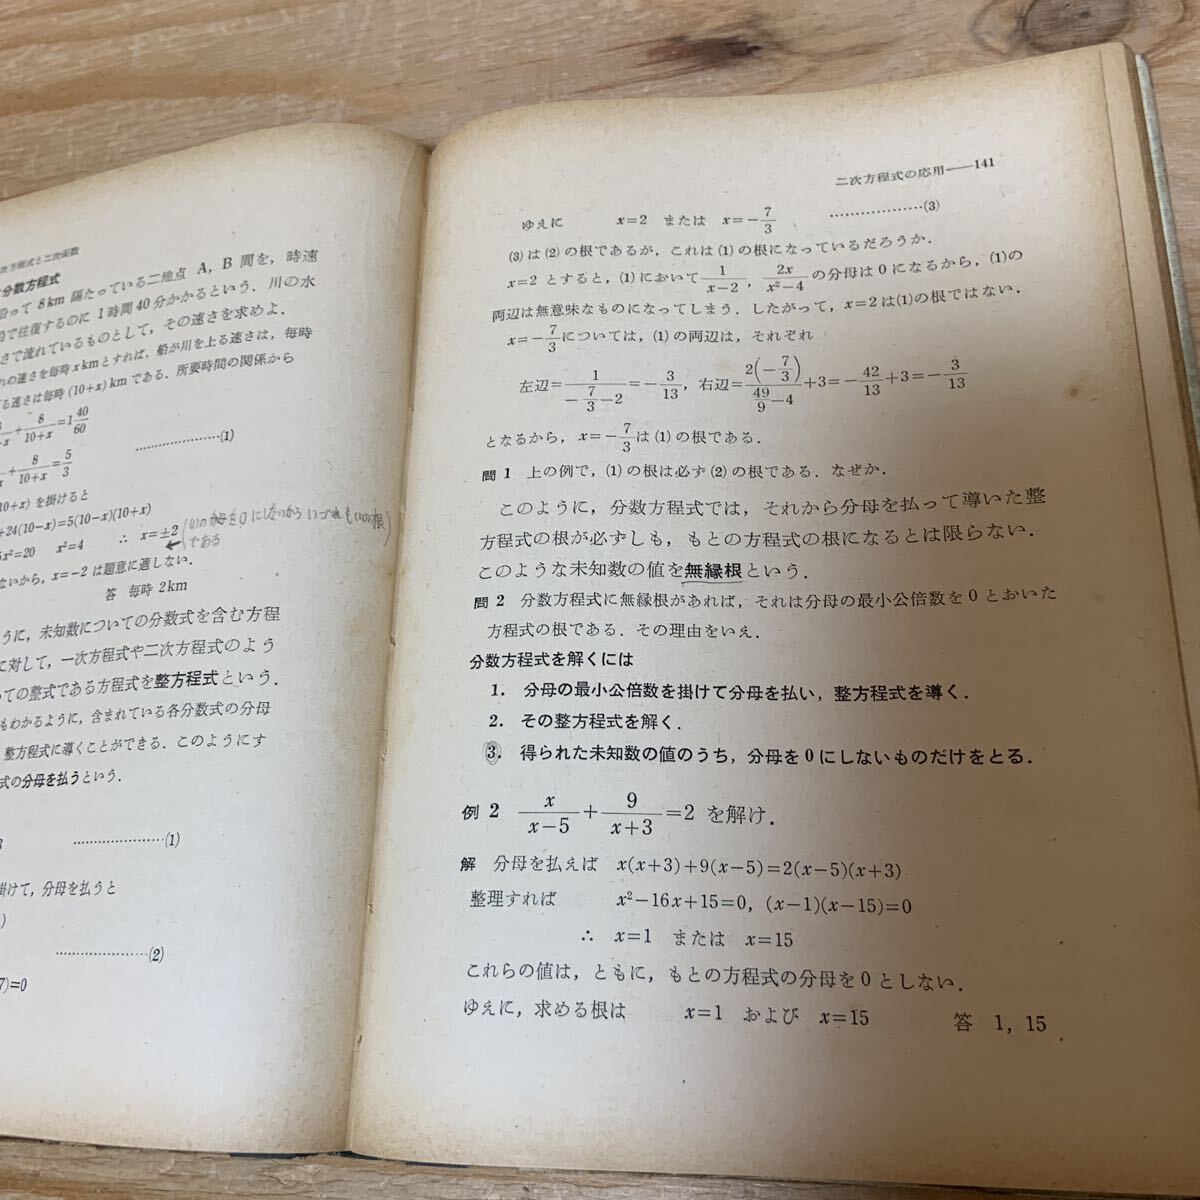 次方程式と二次函数
分数方程式
沿って 8km 隔たっている二地点 A，B 間を，時速
船で往復するのに 1 時間 40 分かかるという．川の水
さで流れているものとして，その速さを求めよ．
れの速さを毎時 xkm とすれば，船が川を上る速さは，毎時
る速さは毎時 (10+x) km である．所要時間の関係から
8/(10+x)=1 40/60
8/(10+x)=5/3 ……………(1)
(10+x) を掛けると
+24(10−x)=5(10−x)(10+x)
5x²=20　x²=4　∴ x=±2
ないから，x=−2 は題意に適しない．
答　毎時 2km
うに，未知数についての分数式を含む方程
に対して，一次方程式や二次方程式のよう
ての整式である方程式を整方程式という．
もわかるように，含まれている各分数式の分母
整方程式に導くことができる．このようにす
式の分母を払うという．
3 ……………(1)
掛けて，分母を払うと
……………(2)
7)=0
二次方程式の応用——141
ゆえに　x=2 または x=−7/3 ……………(3)
(3) は (2) の根であるが，これは (1) の根になっているだろうか．
x=2 とすると，(1) において 1/(x−2)，2x/(x²−4) の分母は 0 になるから，(1) の
両辺は無意味なものになってしまう．したがって，x=2 は (1) の根ではない．
x=−7/3 については，(1) の両辺は，それぞれ
左辺=1/(−7/3−2)=−3/13，右辺=2(−7/3)/(49/9−4)+3=−42/13+3=−3/13
となるから，x=−7/3 は (1) の根である．
問 1　上の例で，(1) の根は必ず (2) の根である．なぜか．
このように，分数方程式では，それから分母を払って導いた整
方程式の根が必ずしも，もとの方程式の根になるとは限らない．
このような未知数の値を無縁根という．
問 2　分数方程式に無縁根があれば，それは分母の最小公倍数を 0 とおいた
方程式の根である．その理由をいえ．
分数方程式を解くには
1．分母の最小公倍数を掛けて分母を払い，整方程式を導く．
2．その整方程式を解く．
3．得られた未知数の値のうち，分母を 0 にしないものだけをとる．
例 2　x/(x−5)+9/(x+3)=2 を解け．
解　分母を払えば　x(x+3)+9(x−5)=2(x−5)(x+3)
整理すれば　x²−16x+15=0，(x−1)(x−15)=0
∴ x=1 または x=15
これらの値は，ともに，もとの方程式の分母を 0 としない．
ゆえに，求める根は　x=1 および x=15　答 1，15